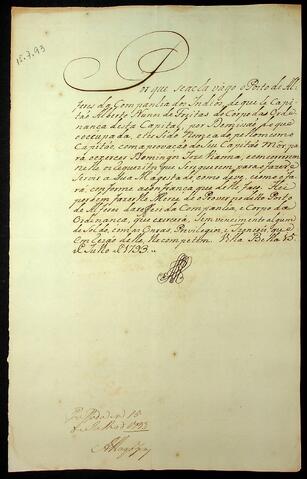 15.7.93
Por que se acha vago o Posto de Al-
feres da Companhia dos Indios, de que he Capi-
taõ Alberto Nunes de Freitas do Corpo das Orde-
nanças desta Capital, por Demissaõ, do que
o occupava, e he sido Nomeado pelo mesmo
Capitaõ, com aprovaçaõ do seu Capitaõ Mór,
para o exercer Domingos José Ramos,
nelle os requizitos que se requerem para fazer o
Servir a Sua Magestade como deve, e como o fa-
rá, conforme a confiança que delle faço. Hei
por bem fazerlhe Merce de o Prover no dito Posto
de Alferes da refferida Companhia, e Corpo da
Ordenança, que exercerá, Sem vencimento algum
de Soldo, com as Onras, Previlegios, e Izençoens, que
em razaõ delle lhe competem. Villa Bella 15
de Julho de 1793.
15
de Julho d 1793